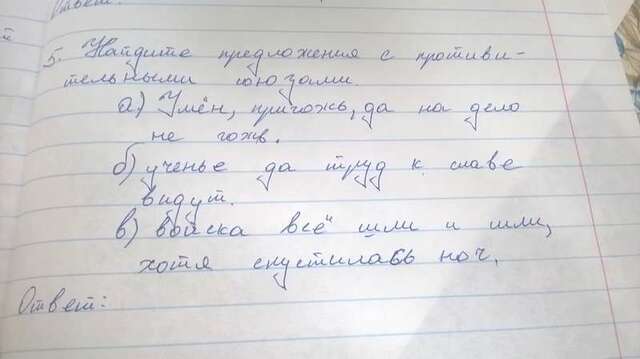 Ответ:
5. Найдите предложения с противи-
тельными союзами.
а) Умён, пригожь, да на дело
не гожь.
б) ученье да труд к славе
видут.
в) войска всё шли и шли,
хотя спустилась ноч.
Ответ: